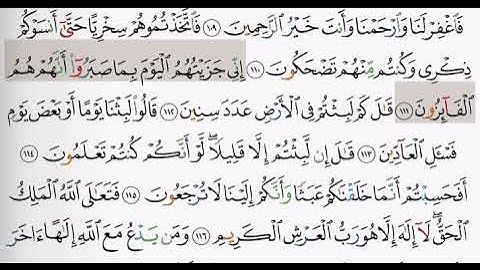 فَٱغْفِرْ لَنَا وَٱرْحَمْنَا وَأَنتَ خَيْرُ ٱلرَّٰحِمِينَ ١٠٩ فَٱتَّخَذْتُمُوهُمْ سِخْرِيًّا حَتَّىٰٓ أَنسَوْكُمْ
ذِكْرِى وَكُنتُم مِّنْهُمْ تَضْحَكُونَ ١١٠ إِنِّى جَزَيْتُهُمُ ٱلْيَوْمَ بِمَا صَبَرُوٓا۟ أَنَّهُمْ هُمُ
ٱلْفَآئِزُونَ ١١١ قَٰلَ كَمْ لَبِثْتُمْ فِى ٱلْأَرْضِ عَدَدَ سِنِينَ ١١٢ قَالُوا۟ لَبِثْنَا يَوْمًا أَوْ بَعْضَ يَوْمٍ
فَسْـَٔلِ ٱلْعَآدِّينَ ١١٣ قَٰلَ إِن لَّبِثْتُمْ إِلَّا قَلِيلًا ۖ لَّوْ أَنَّكُمْ كُنتُمْ تَعْلَمُونَ ١١٤
أَفَحَسِبْتُمْ أَنَّمَا خَلَقْنَٰكُمْ عَبَثًا وَأَنَّكُمْ إِلَيْنَا لَا تُرْجَعُونَ ١١٥ فَتَعَٰلَى ٱللَّهُ ٱلْمَلِكُ
ٱلْحَقُّ ۖ لَآ إِلَٰهَ إِلَّا هُوَ رَبُّ ٱلْعَرْشِ ٱلْكَرِيمِ ١١٦ وَمَن يَدْعُ مَعَ ٱللَّهِ إِلَٰهًا ءَاخَرَ